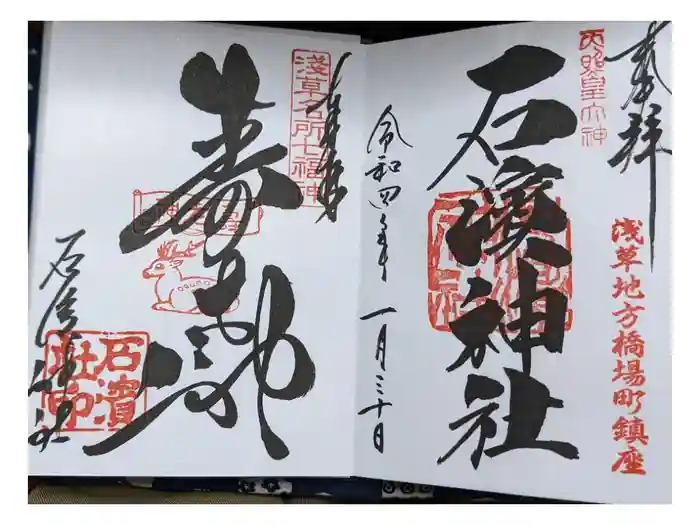 奉拝
天照皇大神
浅草地方橋場町鎮座
石濱神社
令和四年 一月三十日
奉拝
淺草名所七福神
寿老神
石濱神社
石濱
社印